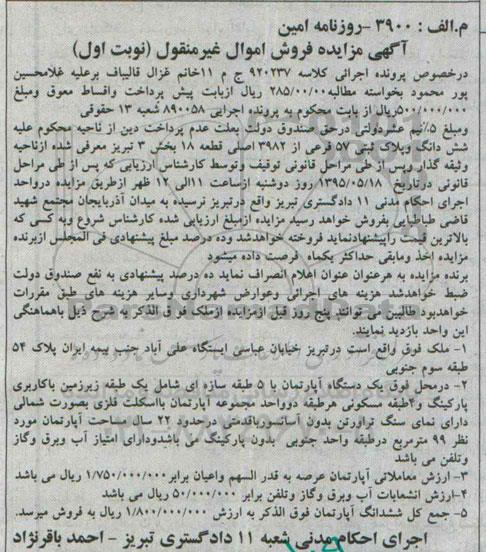 م.الف : ۳۹۰۰ -روزنامه امین
آگهی مزایده فروش اموال غیرمنقول (نوبت اول)
درخصوص پرونده اجرائی کلاسه ۹۲۰۲۳۷ ج م ۱۱خانم غزال قالیباف برعلیه غلامحسین
پور محمود بخواسته مطالبه۲۸۵/۰۰/۰۰ ریال ازبابت پیش پرداخت واقساط معوق ومبلغ
۵۰۰/۰۰۰/۰۰۰ریال از بابت محکوم به پرونده اجرایی ۸۹۰۰۵۸ شعبه ۱۳ حقوقی
ومبلغ ۵٪نیم عشردولتی درحق صندوق دولت بعلت عدم پرداخت دین از ناحیه محکوم علیه
شش دانگ وپلاک ثبتی ۵۷ فرعی از ۳۹۸۲ اصلی قطعه ۱۸ بخش ۳ تبریز معرفی شده ازناحیه
وثیقه گذار وپس از طی مراحل قانونی توقیف وتوسط کارشناس ارزیابی که پس از طی مراحل
قانونی درتاریخ ۱۳۹۵/۰۵/۱۸ روز دوشنبه ازساعت ۱۱الی ۱۲ ظهر ازطریق مزایده درواحد
اجرای احکام مدنی ۱۱ دادگستری تبریز واقع درتبریز نرسیده به میدان آذربایجان مجتمع شهید
قاضی طباطبایی بفروش خواهد رسید مزایده ازمبلغ ارزیابی شده کارشناس شروع وبه کسی که
بالاترین قیمت راپیشنهادنماید فروخته خواهدشد وده درصد مبلغ پیشنهادی فی المجلس ازبرنده
مزایده اخذ ومابقی حداکثر یکماه فرصت داده میشود
برنده مزایده به هرعنوان عنوان اعلام انصراف نماید ده درصد پیشنهادی به نفع صندوق دولت
ضبط خواهدشد هزینه های اجرائی وعوارض شهرداری وسایر هزینه های طبق مقررات
خواهدبود طالبین می توانند پنج روز قبل ازمزایده ازملک فوق الذکر به شرح ذیل باهماهنگی
این واحد بازدید نمایند.
۱- ملک فوق واقع است درتبریز خیابان عباسی ایستگاه علی آباد جنب بیمه ایران پلاک ۵۴
طبقه سوم جنوبی
۲- درمحل فوق یک دستگاه آپارتمان با ۵ طبقه سازه ای شامل یک طبقه زیرزمین باکاربری
پارکینگ و۴طبقه مسکونی هرطبقه دوواحد مجموعه آپارتمان بااسکلت فلزی بصورت شمالی
دارای نمای سنگ تراورتن بدون آسانسورباقدمتی درحدود ۲۲ سال مساحت آپارتمان مورد
نظر ۹۹ مترمربع درطبقه واحد جنوبی بدون پارکینگ می باشدودارای امتیاز آب وبرق وگاز
وتلفن می باشد
۳- ارزش معاملاتی آپارتمان عرصه به قدر السهم واعیان برابر۱/۷۵۰/۰۰۰/۰۰۰ ریال می باشد
۴-ارزش انشعابات آب وبرق وگاز وتلفن برابر ۵۰/۰۰۰/۰۰۰ ریال می باشد
۵- جمع کل ششدانگ آپارتمان فوق الذکر به ارزش ۱/۸۰۰/۰۰۰/۰۰۰ ریال به فروش میرسد.
اجرای احکام مدنی شعبه ۱۱ دادگستری تبریز - احمد باقرنژاد